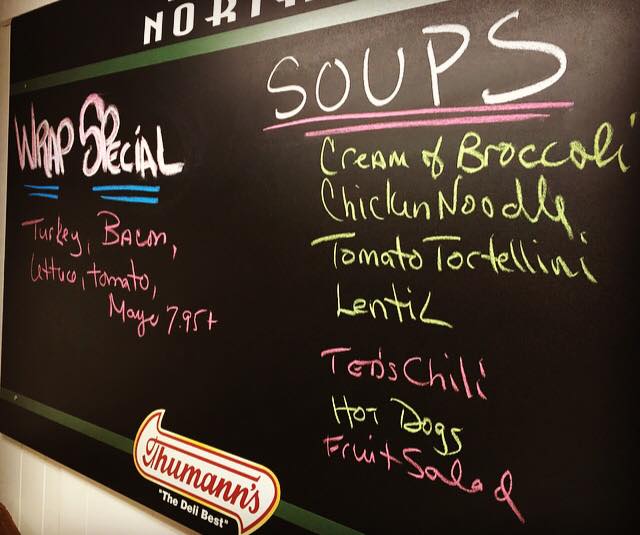 WRAP SPECIAL
Turkey, BACON,
lettuce, tomato,
Mayo 7.95+
SOUPS
CREAM of BROCCOLI
Chicken Noodle
Tomato Tortellini
LentiL
TED'S Chili
HOT Dogs
Fruit Salad
Thumann's
"The Deli Best"